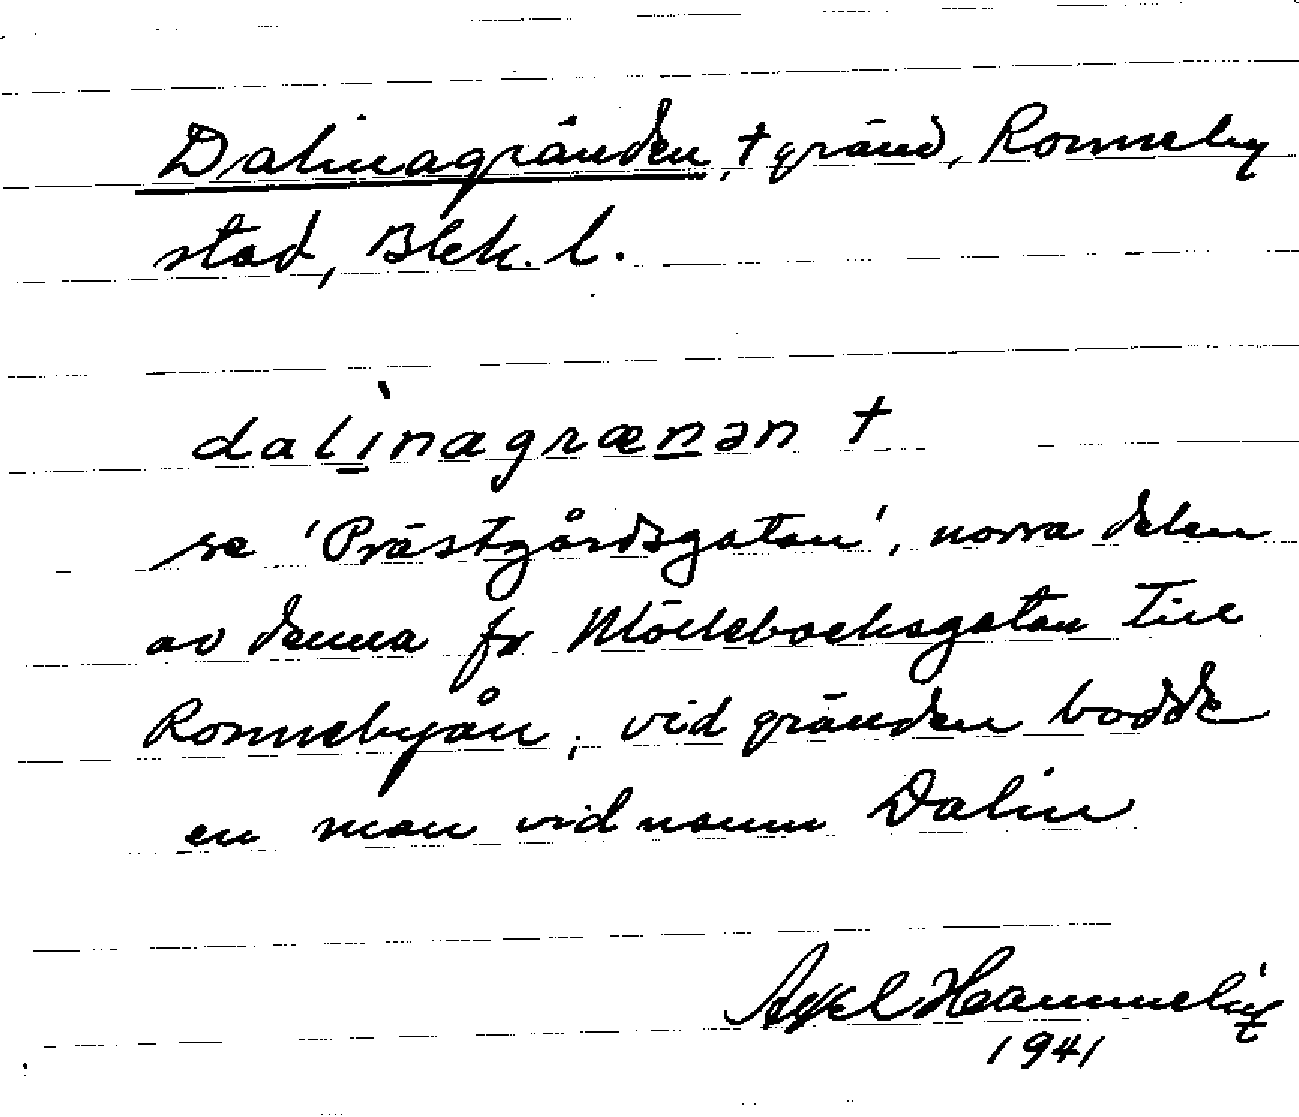 Dalinagränden, † gränd, Ronneby
stad, Blek. l.
dalìnagrænən †
se 'Prästgårdsgatan', norra delen
av denna fr Möllebacksgatan till
Ronnebyån, vid gränden bodde
en man vid namn Dalin
Axel
1941